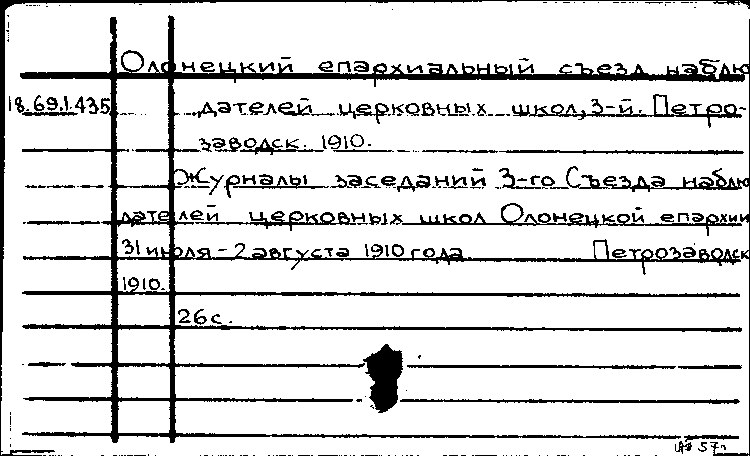 Олонецкий епархиальный съезд наблю
18.69.1.435 дателей церковных школ, 3-й. Петро-
заводск. 1910.
Журналы заседаний 3-го Съезда наблю
дателей церковных школ Олонецкой епархии
31 июля - 2 августа 1910 года. Петрозаводск
1910.
26 с.
57